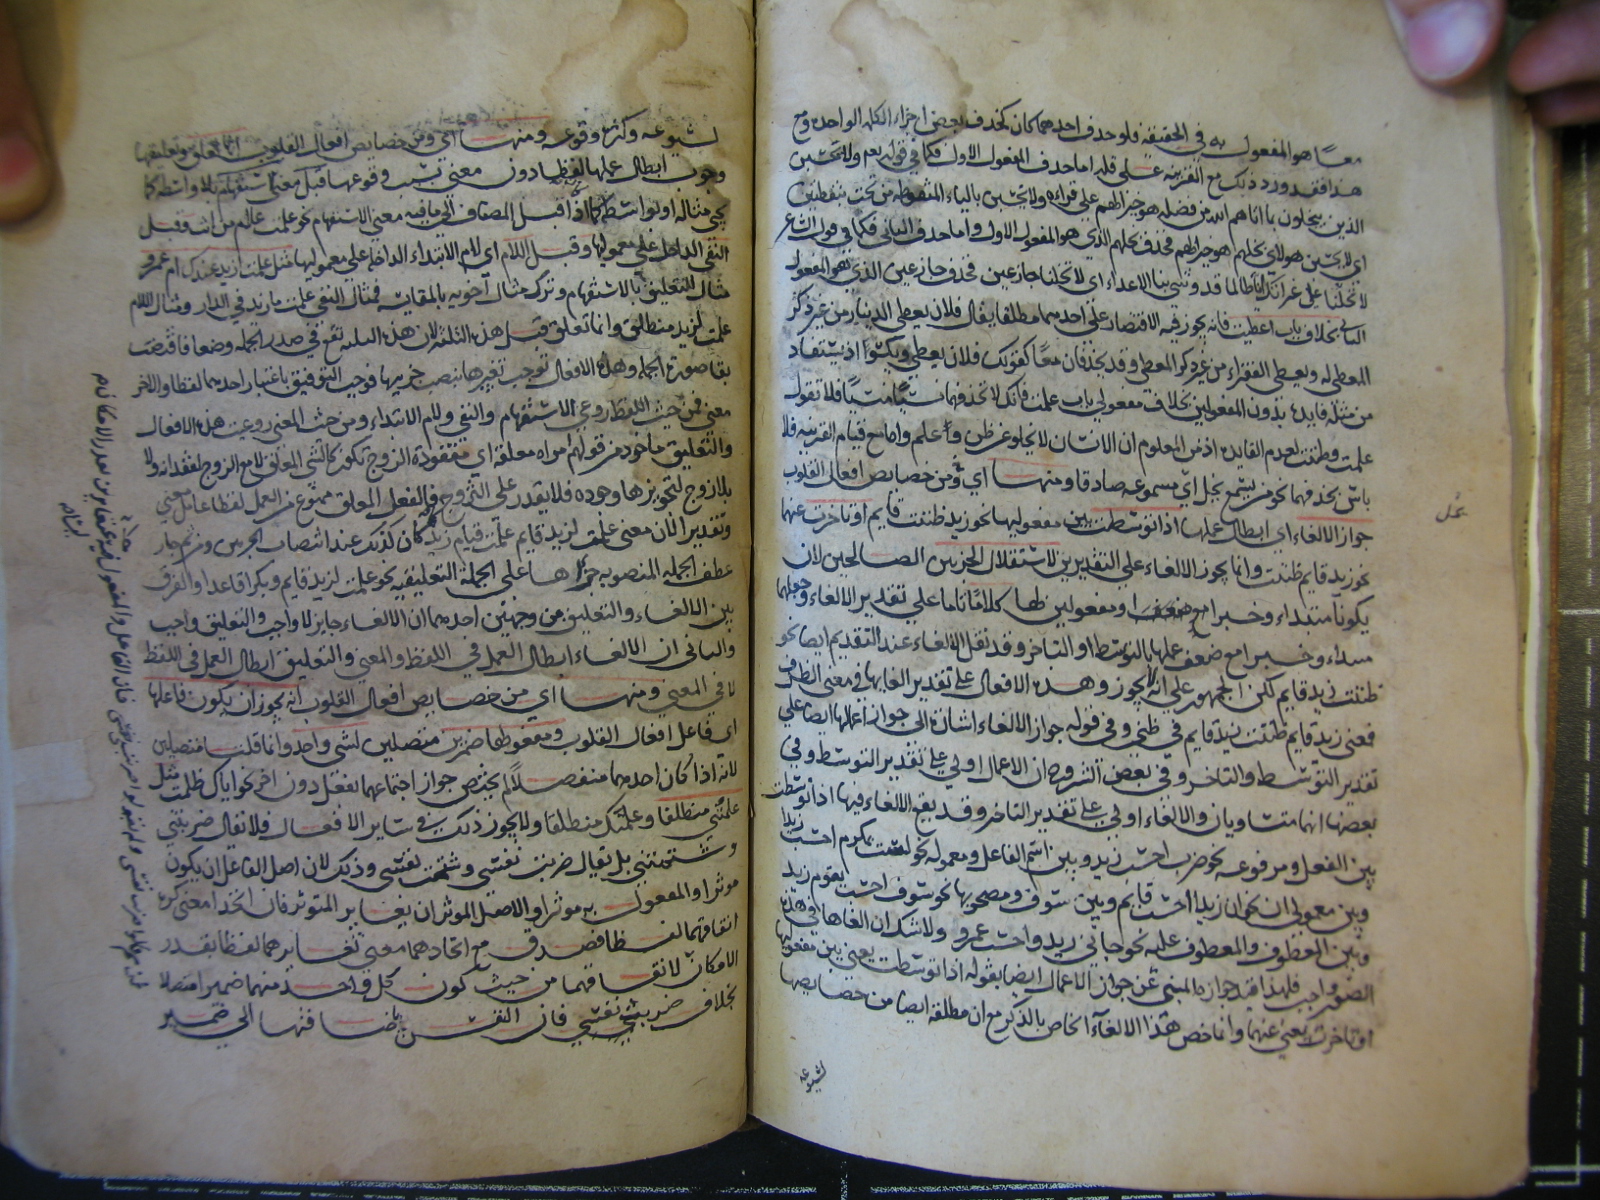 معا هو المفعول به في الحقيقة فلو حذف احدهما كان كحذف بعض اجزاء الكلمة الواحدة ومع
هذا فقد ورد ذلك مع القرينة على قلة اما حذف المفعول الاول فكما في قوله تعم ولا يحسبن
الذين يبخلون بما اتاهم الله من فضله هو خيرا لهم على قراءة ولا يحسبن بالياء المنقوطة من تحت بنقطتين
اي لا يحسبن هؤلاء بخلهم هو خيرا لهم فحذف بخلهم الذي هو المفعول الاول واما حذف الثاني فكما في قول الشاعر
لا تخلنا على غراتك انا طالما قد وشى بنا الاعداء اي لا تخلنا جازعين فحذف جازعين الذي هو المفعول
الثاني بخلاف باب اعطيت فانه يجوز فيه الاقتصار على احدهما مطلقا يقال فلان يعطي الدنانير من غير ذكر
المعطى له ويعطي الفقراء من غير ذكر المعطى وقد يحذفان معا كقولك فلان يعطي ويكسو اذ يستفاد
من مثله فايدة بدون المفعولين بخلاف مفعولي باب علمت فانك لا تحذفهما نسيا منسيا فلا تقول
علمت وظننت لعدم الفايدة اذ من المعلوم ان الانسان لا يخلو عن ظن وعلم واما مع قيام القرينة فلا
باس بحذفهما نحو من يسمع يخل اي مسموعه صادقا ومنها اي ومن خصايص افعال القلوب
جواز الالغاء اي ابطال عملها اذا توسطت بين مفعوليها نحو زيد ظننت قايم او تاخرت عنهما
نحو زيد قايم ظننت وانما يجوز الالغاء على التقديرين لاستقلال الجزئين الصالحين لان
يكونا مبتداء وخبرا او مفعولين لها كلاما تاما على تقدير الالغاء وجعلهما
مبتداء وخبرا مع ضعف عملها بالتوسط او التاخر وقد نقل الالغاء عند التقديم ايضا نحو
ظننت زيد قايم لكن الجمهور على انه لا يجوز وهذه الافعال على تقدير الغايها في معنى الظرف
فمعنى زيد قايم ظننت زيد قايم في ظني وفي قوله جواز الالغاء اشارة الى جواز اعمالها ايضا على
تقدير التوسط والتاخر وفي بعض الشروح ان الاعمال اولى على تقدير التوسط وفي
بعضها انهما متساويان والالغاء اولى على تقدير التاخر وقد يقع الالغاء فيها اذا توسطت
بين الفعل ومرفوعه نحو ضرب احسب زيد وبين اسم الفاعل ومعموله نحو لست بمكرم احسب زيدا
وبين معمولي ان نحو ان زيدا احسب قايم وبين سوف ومصحوبها نحو سوف احسب يقوم زيد
وبين المعطوف والمعطوف عليه نحو جاءني زيد واحسب عمرو ولا شك ان الغاءها في هذه
الصور واجب فلهذا قيد جوازه المبني عن جواز الاعمال ايضا بقوله اذا توسطت يعني بين مفعوليها
او تاخرت يعني عنهما وانما خص هذا الالغاء الخاص بالذكر مع ان مطلقه ايضا من خصايصها
لشيوعه
لشيوعه وكثرة وقوعه ومنها اي ومن خصايص افعال القلوب انها تعلق وتعليقها
وجوب ابطال عملها لفظا دون معنى بسبب وقوعها قبل معنى الاستفهام بلا واسطة كما
يجيء مثاله او بواسطة كما اذا قبل المضاف الى ما فيه معنى الاستفهام نحو علمت غلام من انت وقبل
النفي الداخل على معموليها وقبل اللام اي لام الابتداء الداخلة على معموليها مثل علمت ازيد عندك ام عمرو
مثال للتعليق بالاستفهام وترك مثال اخويه بالمقايسة فمثال النفي علمت ما زيد في الدار ومثال اللام
علمت لزيد منطلق وانما تعلق قبل هذه الثلثة لان هذه الثلثة تقع في صدر الجملة وضعا فاقتضت
بقاء صورة الجملة وهذه الافعال توجب تغيرها بنصب جزئيها فوجب التوفيق باعتبار احدهما لفظا والاخر
معنى فمن حيث اللفظ روعي الاستفهام والنفي ولام الابتداء ومن حيث المعنى روعيت هذه الافعال
والتعليق ماخوذ من قولهم امراة معلقة اي مفقودة الزوج تكون كالشيء المعلق لا مع الزوج لفقدانه ولا
بلا زوج لتجويزها وجوده فلا يقدر على التزوج فالفعل المعلق ممنوع من العمل لفظا عامل معنى
وتقديرا لان معنى علمت لزيد قايم علمت قيام زيد كما كان كذلك عند انتصاب الجزئين ومن ثم جاز
عطف الجملة المنصوبة جزاها على الجملة التعليقية نحو علمت لزيد قايم وبكرا قاعدا والفرق
بين الالغاء والتعليق من وجهين احدهما ان الالغاء جايز لا واجب والتعليق واجب
والثاني ان الالغاء ابطال العمل في اللفظ والمعنى والتعليق ابطال العمل في اللفظ
لا في المعنى ومنها اي من خصايص افعال القلوب انه يجوز ان يكون فاعلها
اي فاعل افعال القلوب ومفعولها ضميرين متصلين لشيء واحد وانما قلت متصلين
لانه اذا كان احدهما منفصلا لم يختص جواز اجتماعهما بفعل دون اخر نحو اياك ظلمت مثل
علمتني منطلقا وعلمتك منطلقا ولا يجوز ذلك في ساير الافعال فلا يقال ضربتني
وشتمتني بل يقال ضربت نفسي وشتمت نفسي وذلك لان اصل الفاعل ان يكون
موثرا والمفعول به موثرا والاصل الموثر ان يغاير المتوثر فان اتحدا معنى كره
اتفاقهما لفظا فقصد مع اتحادهما معنى تغايرهما لفظا بقدر
الامكان لاتفاقهما من حيث كون كل واحد منهما ضميرا متصلا
بخلاف ضربت نفسي فان النفس باضافتها الى ضمير